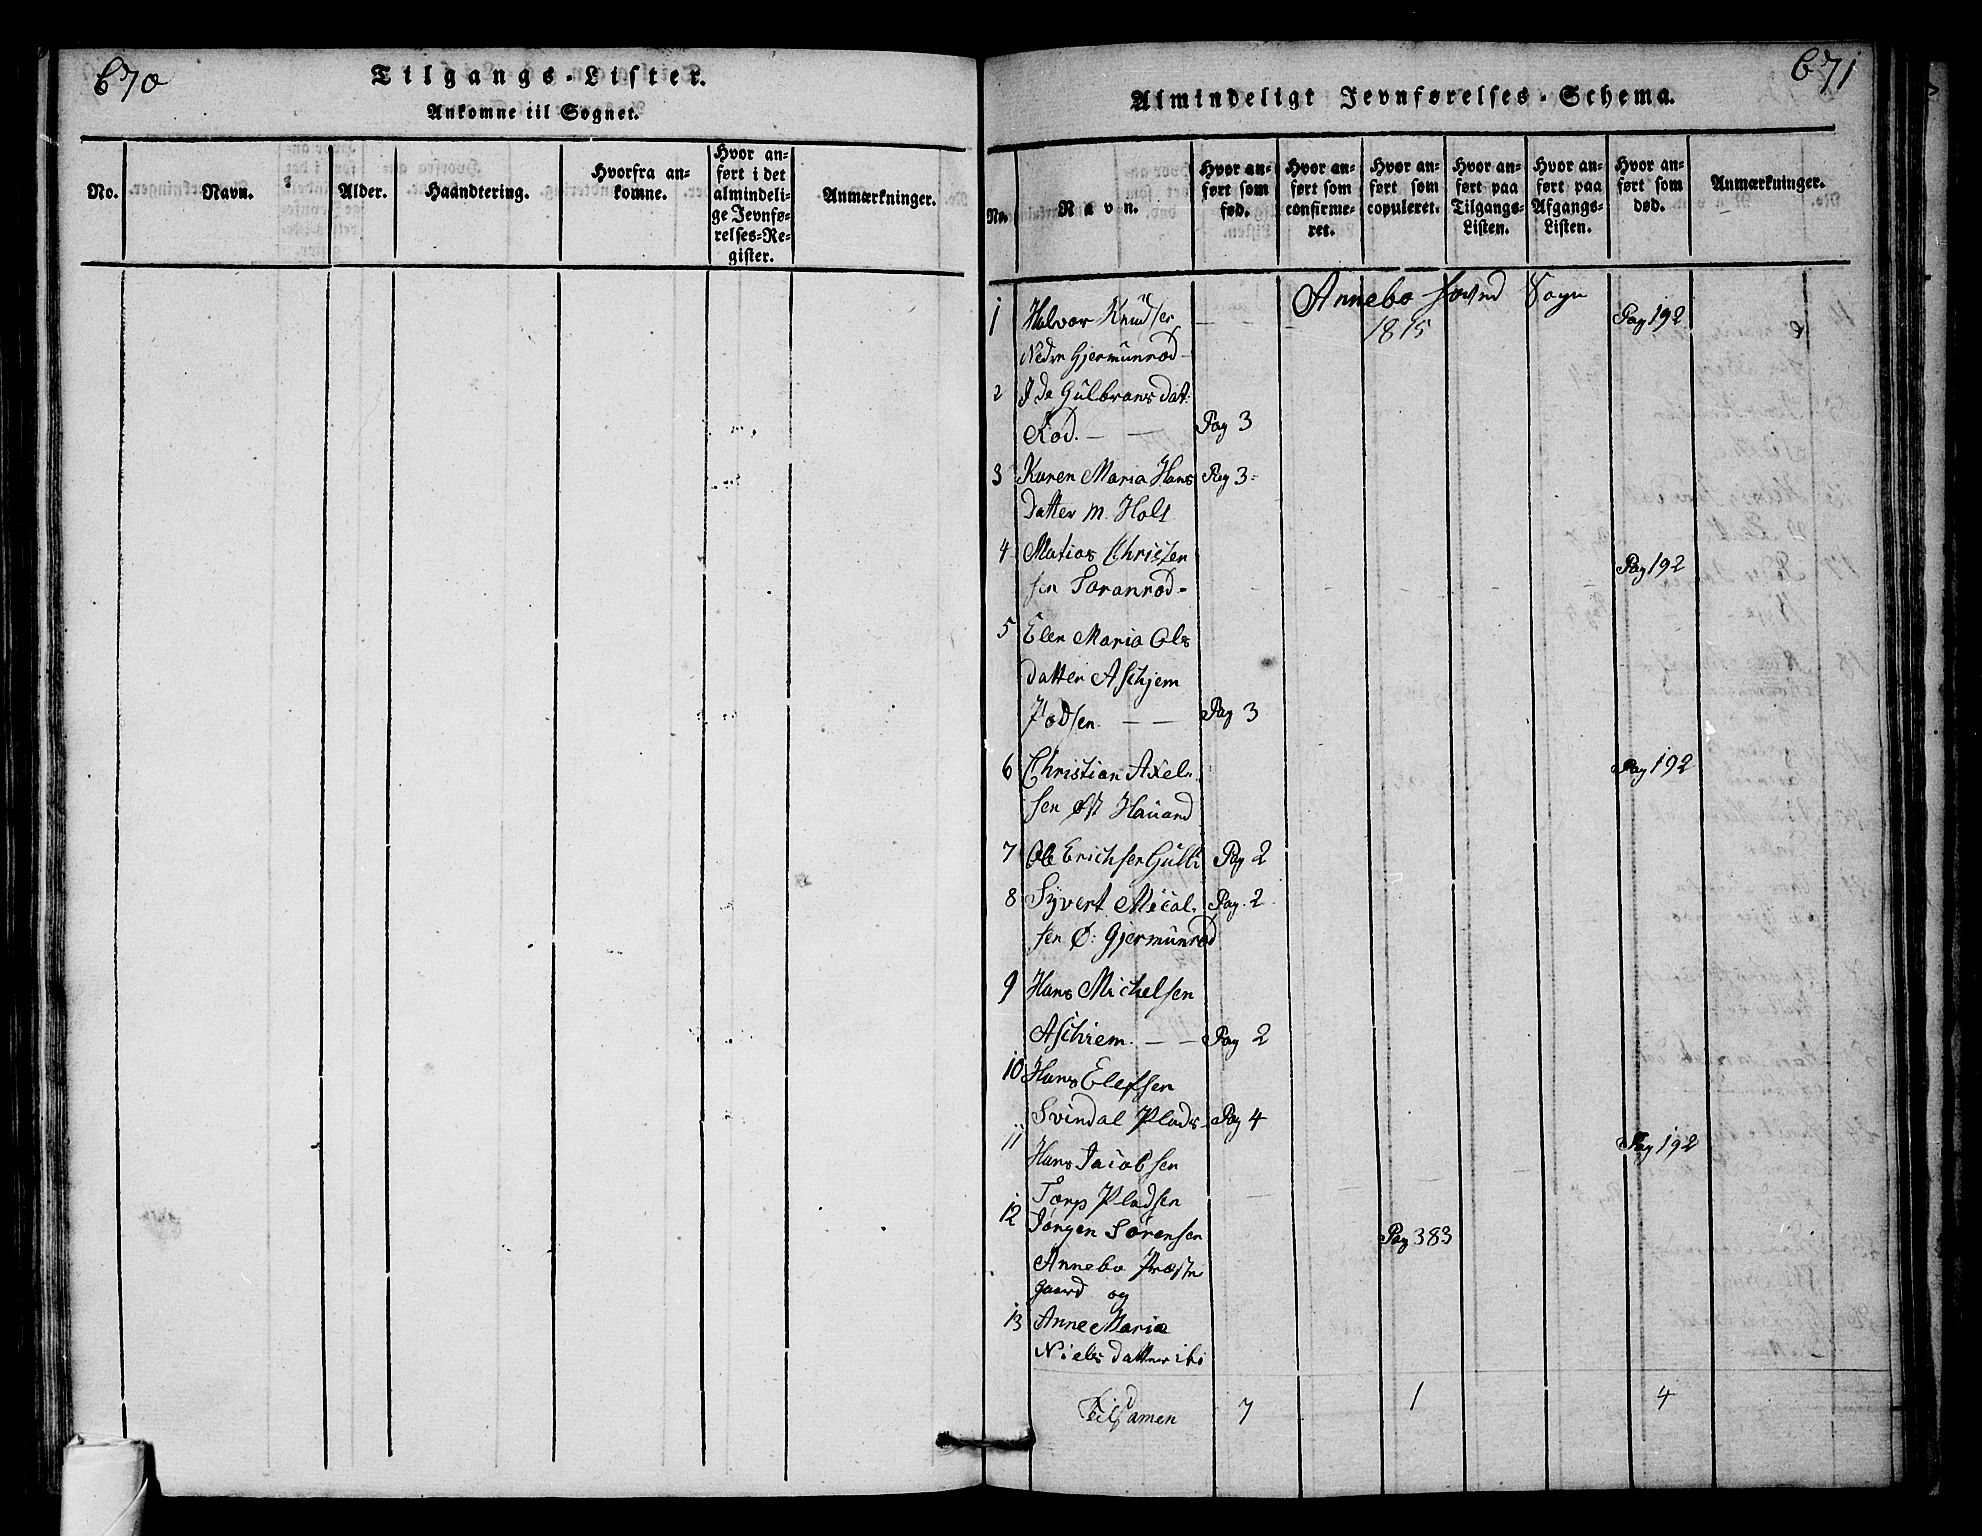 670
Tilgangs-Lister.
Ankomne til Sognet.
No.
Navn.
Alder.
Haandtering.
Hvorfra an-
komne.
Hvor an-
ført i det
almindeli-
ge Jevnfø-
relses-Re-
gister.
Anmærkninger.
671
Almindeligt Jevnførelses-Schema.
No.
Navn.
Hvor an-
ført som
fød.
Hvor an-
ført som
confirme-
ret.
Hvor an-
ført som
copuleret.
Hvor an-
ført paa
Tilgangs-
Listen.
Hvor an-
ført paa
Afgangs-
Listen.
Hvor an-
ført som
død.
Anmærkninger.
Annebo Sogn
1815
1 Halvor Knudsen Pag 192
Nedre Gjermunrød
2 Ida Gulbransdat:
Rød. Pag 3
3 Karen Maria Hans Pag 3
datter m. Holt
4 Matias Christen Pag 192
sen Taranrød
5 Elen Maria Ols
datter Aschjem
Pag 3
6 Christian Axel Pag 192
sen Øst Hauand
7 Ole Erichsen Gulli Pag 2
8 Syvert Mical Pag. 2
sen Ø: Gjermunrød
9 Hans Michelsen
Aschiem Pag 2
10 Hans Elefsen
Svindal Plads Pag 4
11 Hans Jacobsen Pag 192
Torp Pladsen
12 Jørgen Sørensen Pag 383
Annebo Præste
gaard og
13 Anne Maria
Nielsdatter ibi
Tilsamen 7 1 4